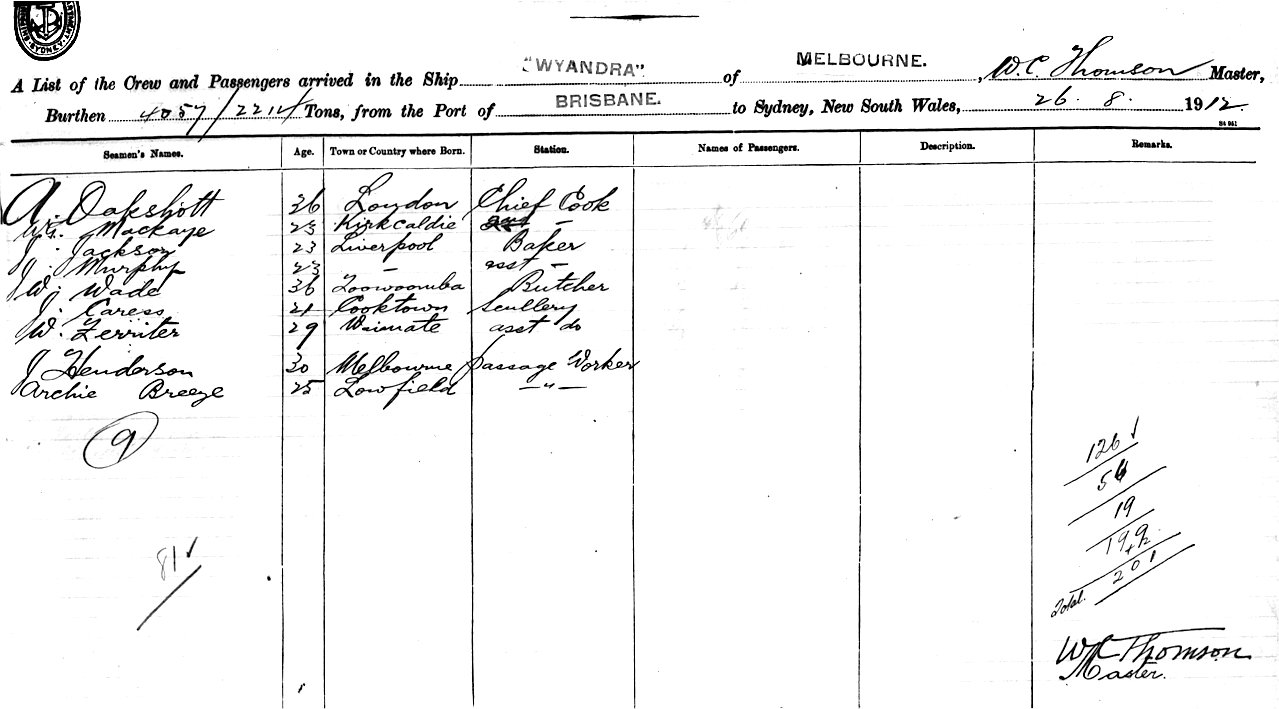 SYDNEY
A List of the Crew and Passengers arrived in the Ship "WYANDRA" of MELBOURNE. , W.C. Thomson Master,
Burthen 4057/2214 Tons, from the Port of BRISBANE. to Sydney, New South Wales, 26. 8. 1912.
Seamen's Names. Age. Town or Country where Born. Station. Names of Passengers. Description. Remarks.
A. Oakshott 36 London Chief Cook
Wm. Mackaye 23 Kirkcaldie 2nd –
J. Jackson 23 Liverpool Baker
J. Murphy 23 – asst –
W. Wade 36 Toowoomba Butcher
J. Caress 21 Cooktown Scullery
W. Ferriter 29 Waimate asst do
J Henderson 30 Melbourne passage Worker
Archie Breeze 25 Lowfield – " –
9
126 ✓
54
19
199
+2
Total. 201
81 ✓
W C Thomson
Master.